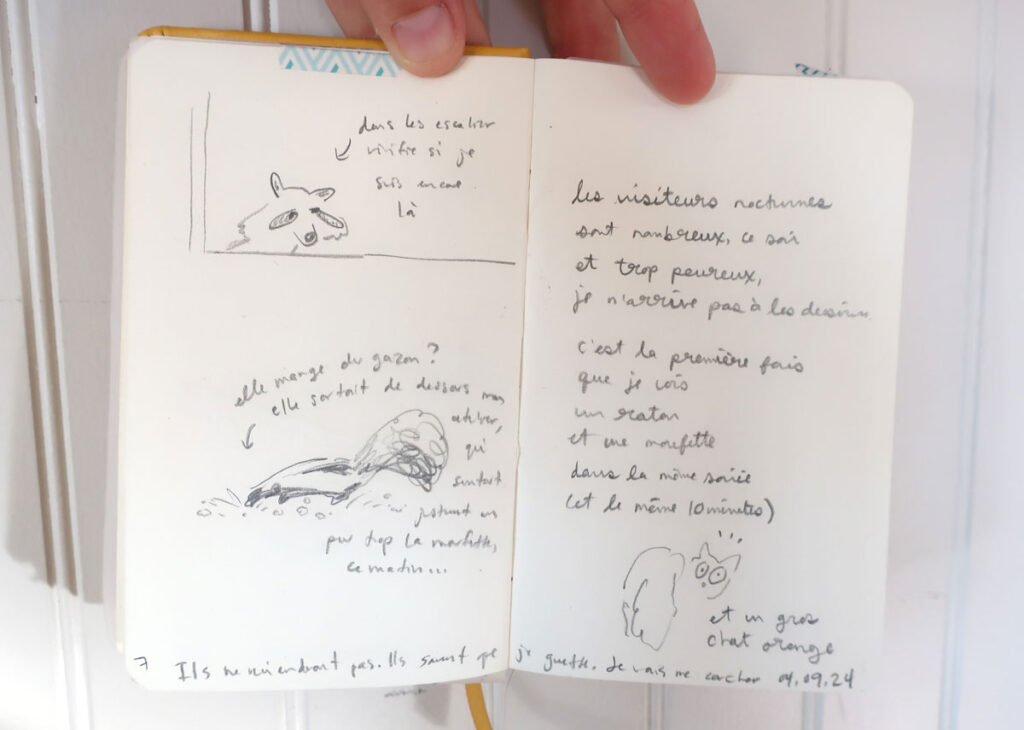 dans les escalier
vérifie si je
suis encore
là
elle mange du gazon?
elle sortait de dessous mon
atelier,
qui
sentait
pourtant un
peu trop la moufette,
ce matin...
7 Ils ne viendront pas. Ils savent que je guette. Je vais me coucher 04.09.24
les visiteurs nocturnes
sont nombreux, ce soir
et trop peureux,
je n'arrive pas à les dessiner.
c'est la première fois
que je vois
un raton
et une moufette
dans la même soirée
(et le même 10 minutes)
et un gros
chat orange